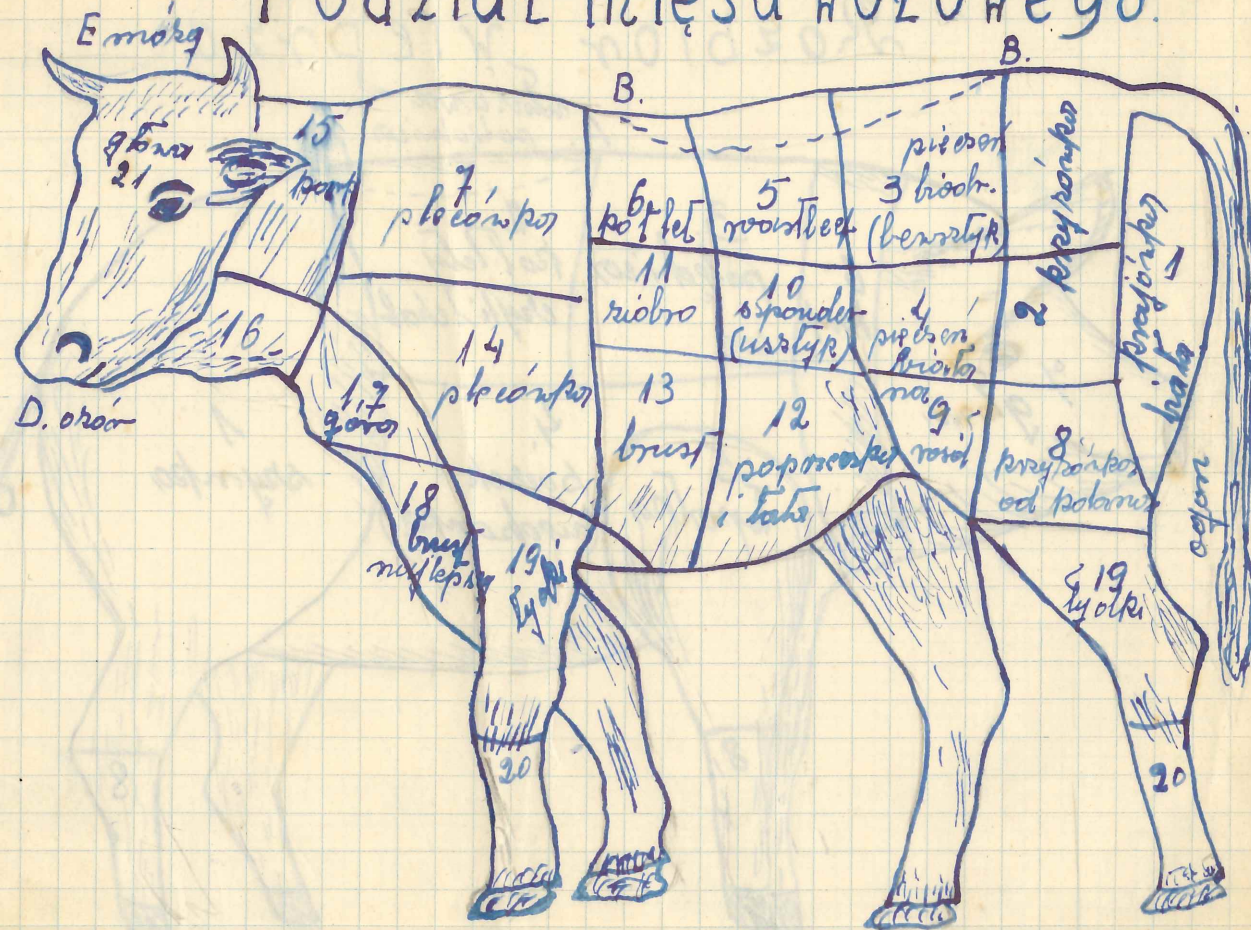 Podział mięsa wołowego.
E mózg
B.
B.
głowa
21
15
kark
7
plecówka
6
kotlet
5
roastbeef
pieczeń
3 biodr.
(bewsztyk)
2 krzyżówka
1 krajónka
biała
11
ziobro
10
szponder
(usztyk)
4
pieczeń
16
14
plecówka
17
góra
13
brust
12
poprzeczka
i łata
9
8
krzyżówka
od
ogon
D. ozór
18
brust
najlepszy
19
łydki
19
łydki
20
20